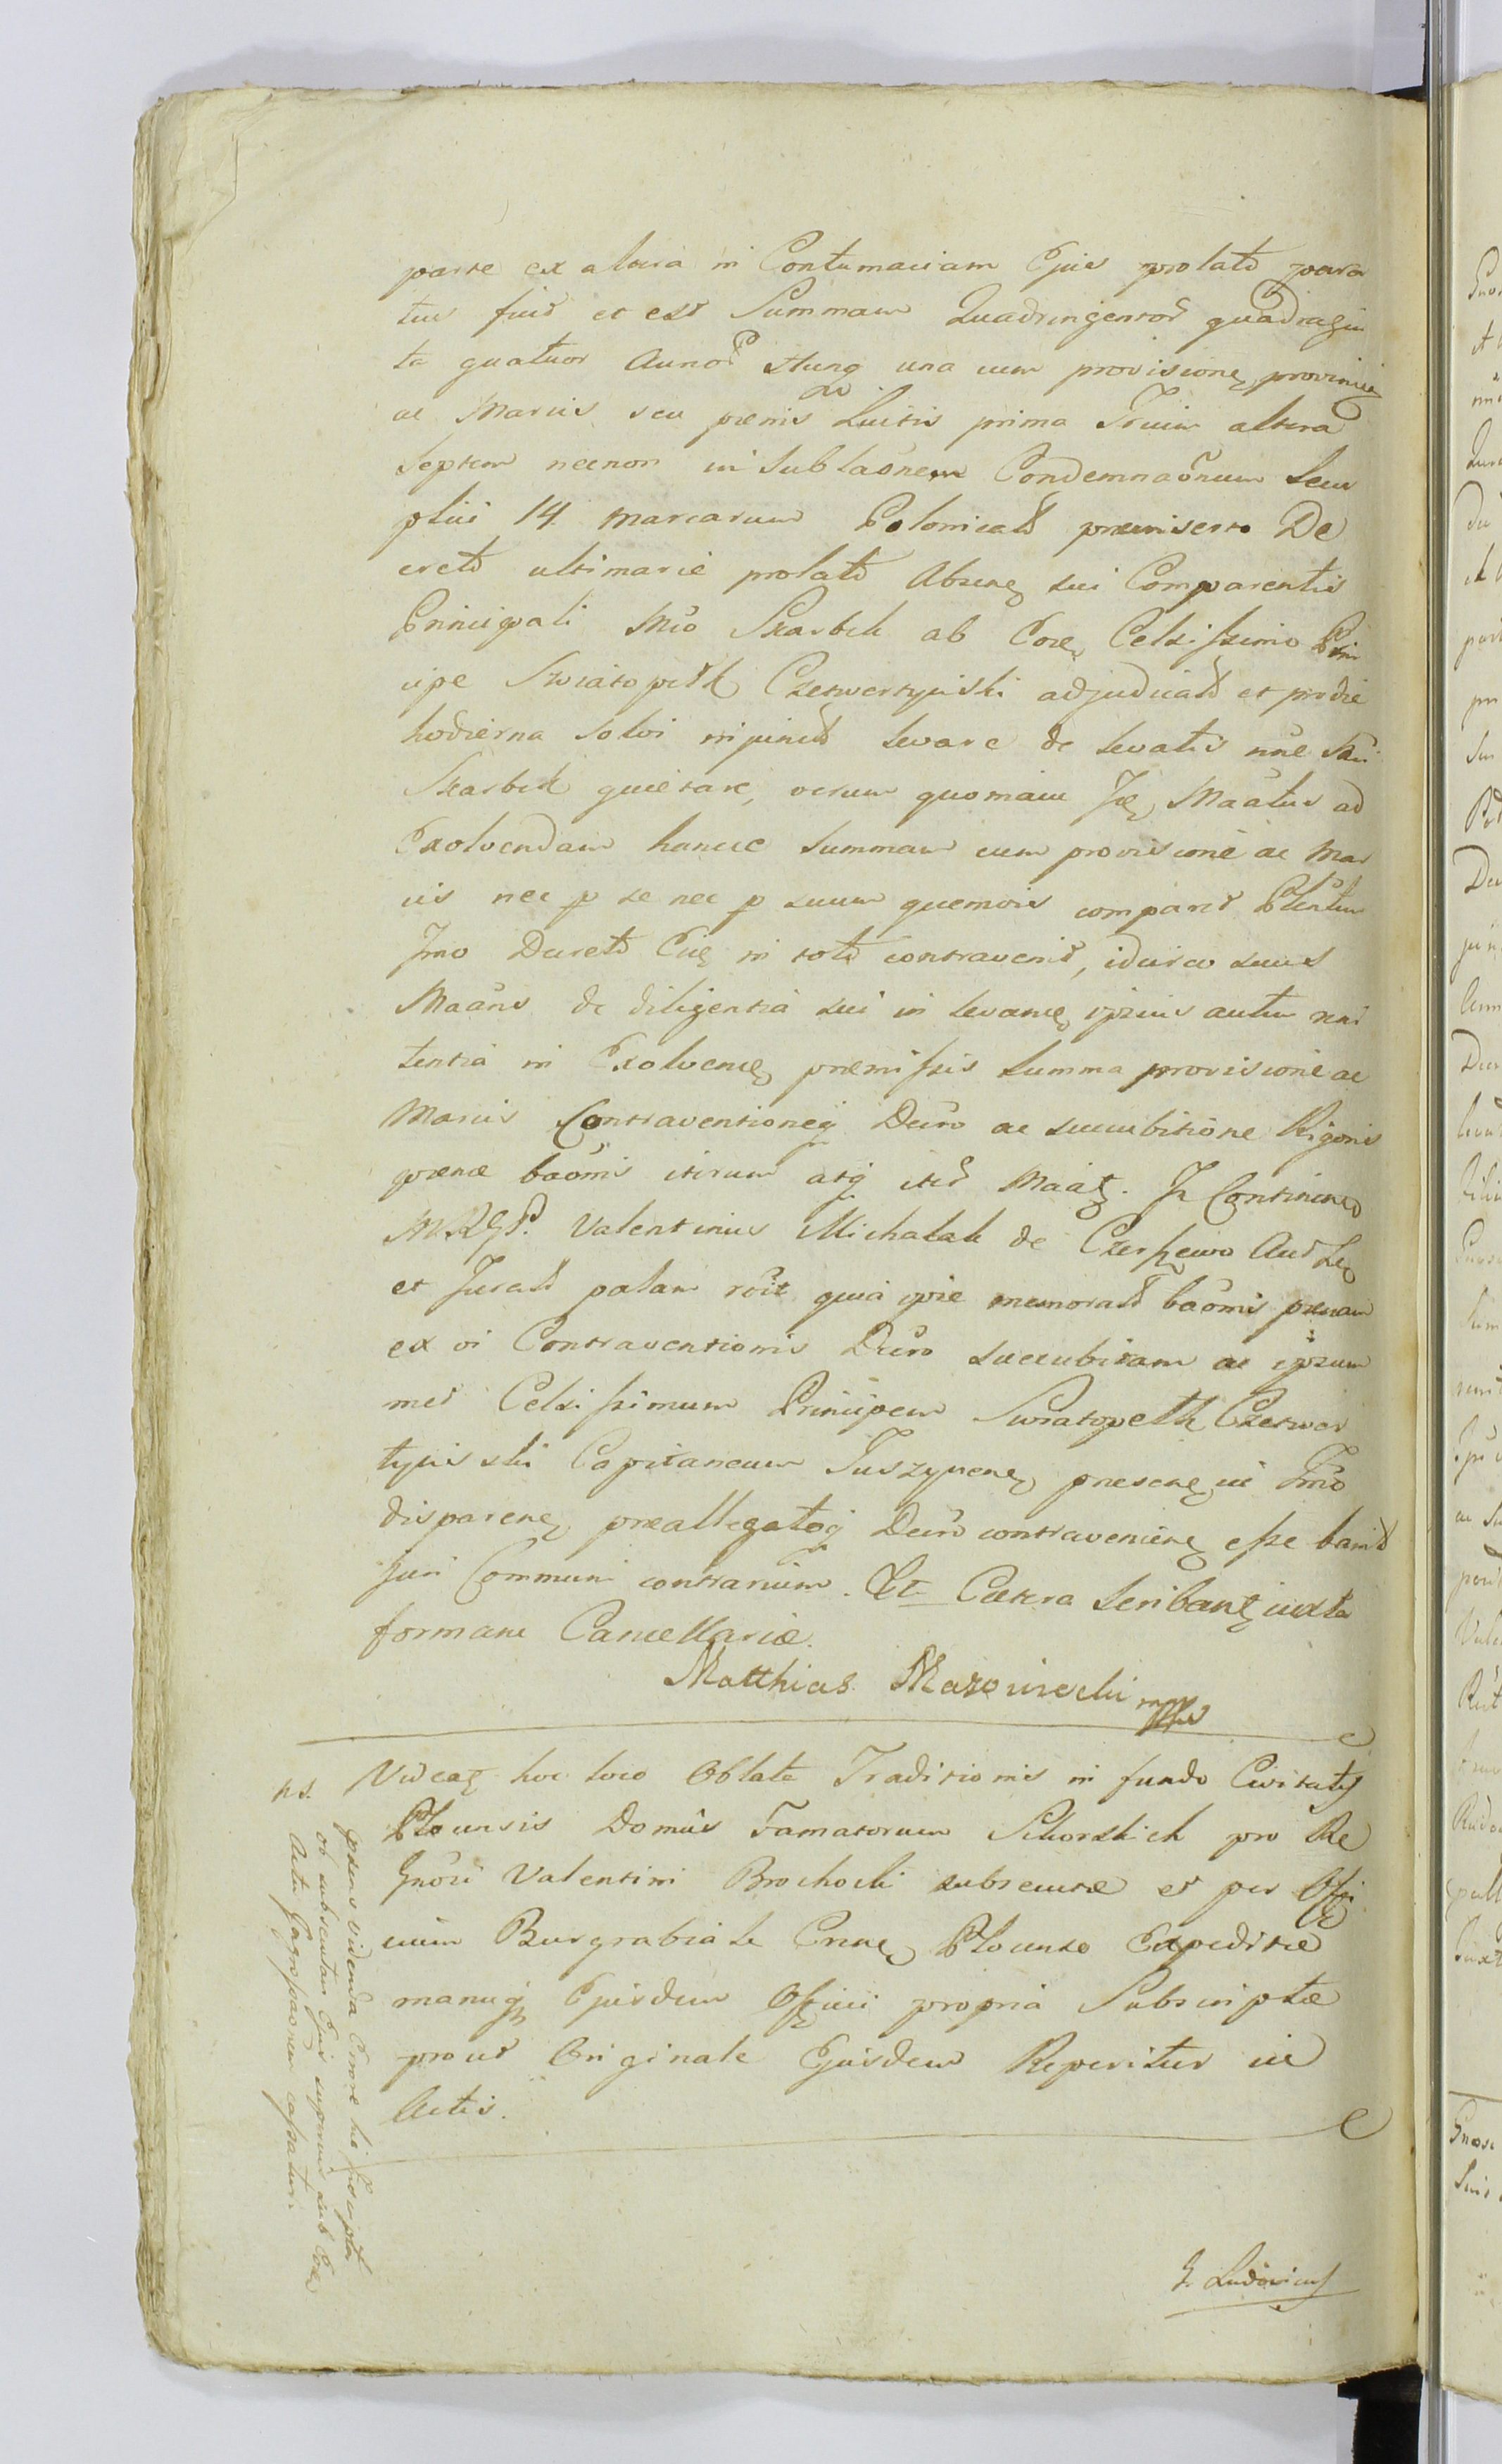 parte ex altera in Contumaciam Ejus prolato para
tus fuit et est Summam Quadringentor quadragin
ta quatuor Auror Hung una cum provisione proven
ac Marcis seu poenis Luitis prima Trium altera
Septem necnon in Sublaonem Condemnaonum Sum
ptui 14 marcarum Polonicals praeinserto De
creto ultimarie prolato Absen sui Comparentis
Principali Mco Skarbek ab Coe Celsissimo Prin
cipe Swiatopelk Czetwertynski adjudicato et pro die
hodierna Solvi injunct levare de levatis nne Sui
Skarbek quietare, verum quoniam Maatus ad
Exolvendam hancce Summam cum provisione ac Mar
cis nec p se nec p suum quemvis comparet Plentem
Imo Decreto in toto contravenit, idcirco suus
Maans de diligentia sui in levan ipsius autem reni
tentia in Exolven praemissis Summa provisione ac
Marcis Contraventioneq Decro ac succubitione Rigoris
poenae baonis iterum atq iter Maat. In Continen
M.R.G.P. Valentinus Michalak de Aut
et Jurat palam roit quia ipse memorat baonis poenam
ex vi Contraventionis Decro succubitam ac ipsum
met Celsissimum Principem Swiatopelk Czetwer
tynski Capitaneum Tuszynen presen in Tmo
disparen praeallegatoq Decro contravenien esse banit
Juri Communi contrarium. Et Caetera Scribant juxta
formam Cancellariae.
Matthias Mazowiecki mpp
Ns. Videat hoc loco Oblata Traditionis in fundo Civitatis
Plocensis Domûs Famatorum Sikorskich pro Re
Gnosi Valentini Brochocki subsecutae et per Offi
cium Burgrabiale Crnen Plocense Expeditae
manuq Ejusdem Officii propria Subscriptae
prout Originale Ejusdem Reperitur in
Actis.
psens videnda Errore hic
ob subsecutam Ejus superius sub
Actu Ingrossaonem cassatur.
J. Ludovicus